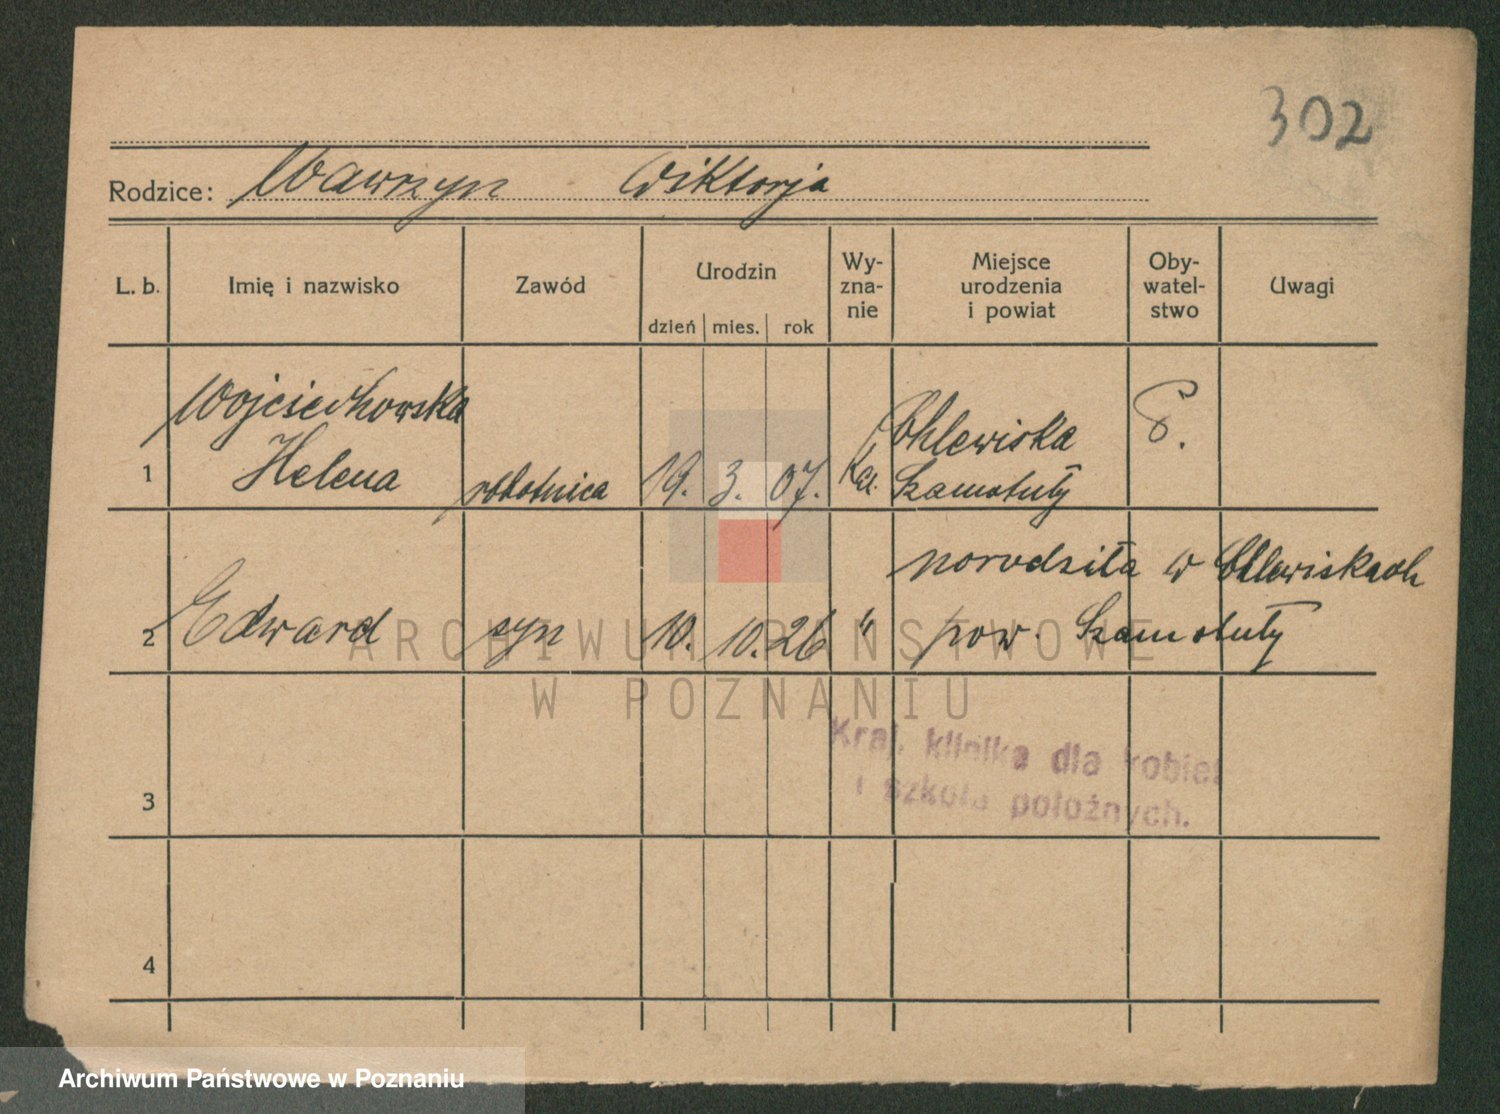 302
Rodzice: Wawrzyn Wiktorja
L. b. Imię i nazwisko Zawód Urodzin dzień mies. rok Wy-zna-nie Miejsce urodzenia i powiat Oby-watel-stwo Uwagi
Wojciechowska
1 Helena robotnica 19. 3. 07. Kat. Chlewiska Szamotuły P.
porodziła w Chlewiskach
2 Edward syn 10. 10. 26 " pow. Szamotuły
ARCHIWUM PAŃSTWOWE
W POZNANIU
Kraj. klinika dla kobiet
i szkoła położnych.
3
4
Archiwum Państwowe w Poznaniu